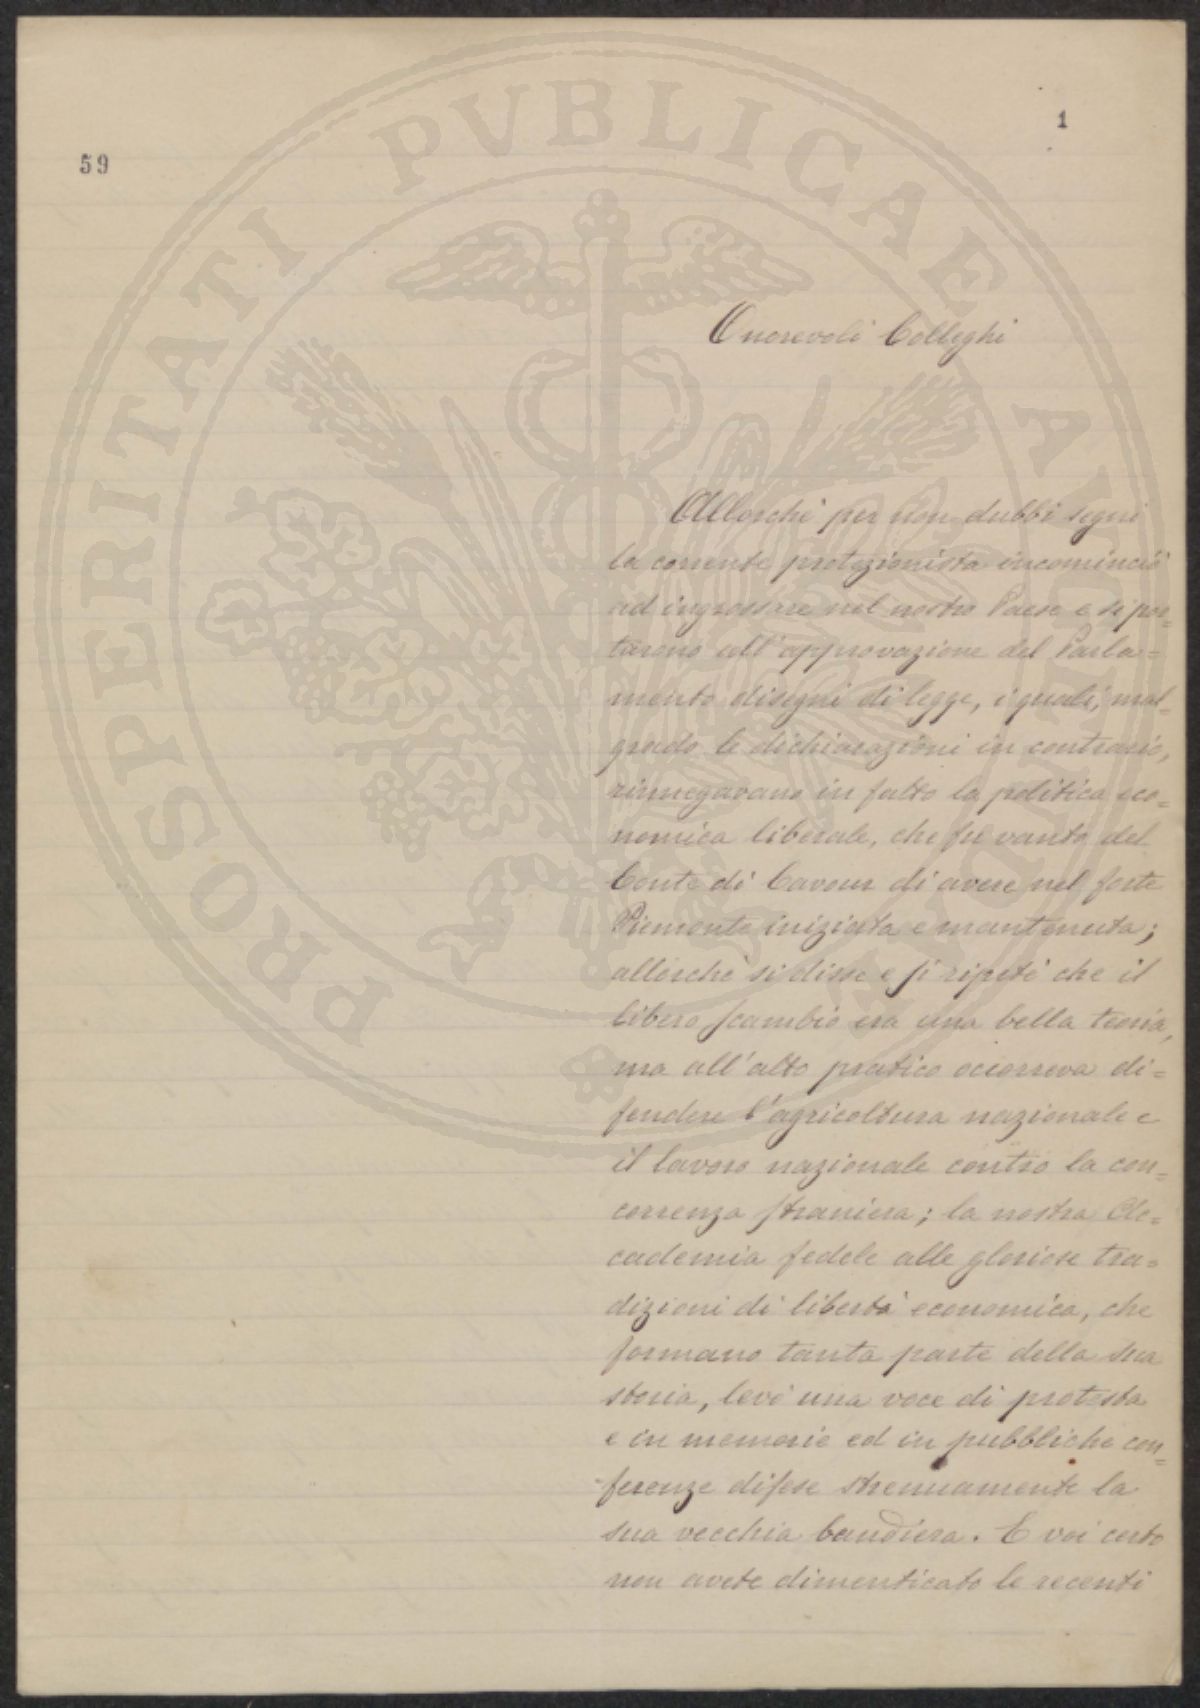 59
1
Onorevoli Colleghi
Allorchè per non dubbi segni
la corrente protezionista incominciò
ad ingrossare nel nostro Paese e si por=
tarono all'approvazione del Parla=
mento disegni di legge, i quali, mal=
grado le dichiarazioni in contrario,
rinnegavano in fatto la politica eco=
nomica liberale, che fu vanto del
Conte di Cavour di avere nel forte
Piemonte iniziata e mantenuta;
allorchè si disse e si ripetè che il
libero scambio era una bella teoria,
ma all'atto pratico occorreva di=
fendere l'agricoltura nazionale e
il lavoro nazionale contro la con=
correnza straniera; la nostra Ac=
cademia fedele alle gloriose tra=
dizioni di libertà economica, che
formano tanta parte della sua
storia, levò una voce di protesta
e in memorie ed in pubbliche con=
ferenze difese strenuamente la
sua vecchia bandiera. E voi certo
non avete dimenticato le recenti
PROSPERITATI PVBLICAE AVGENDAE